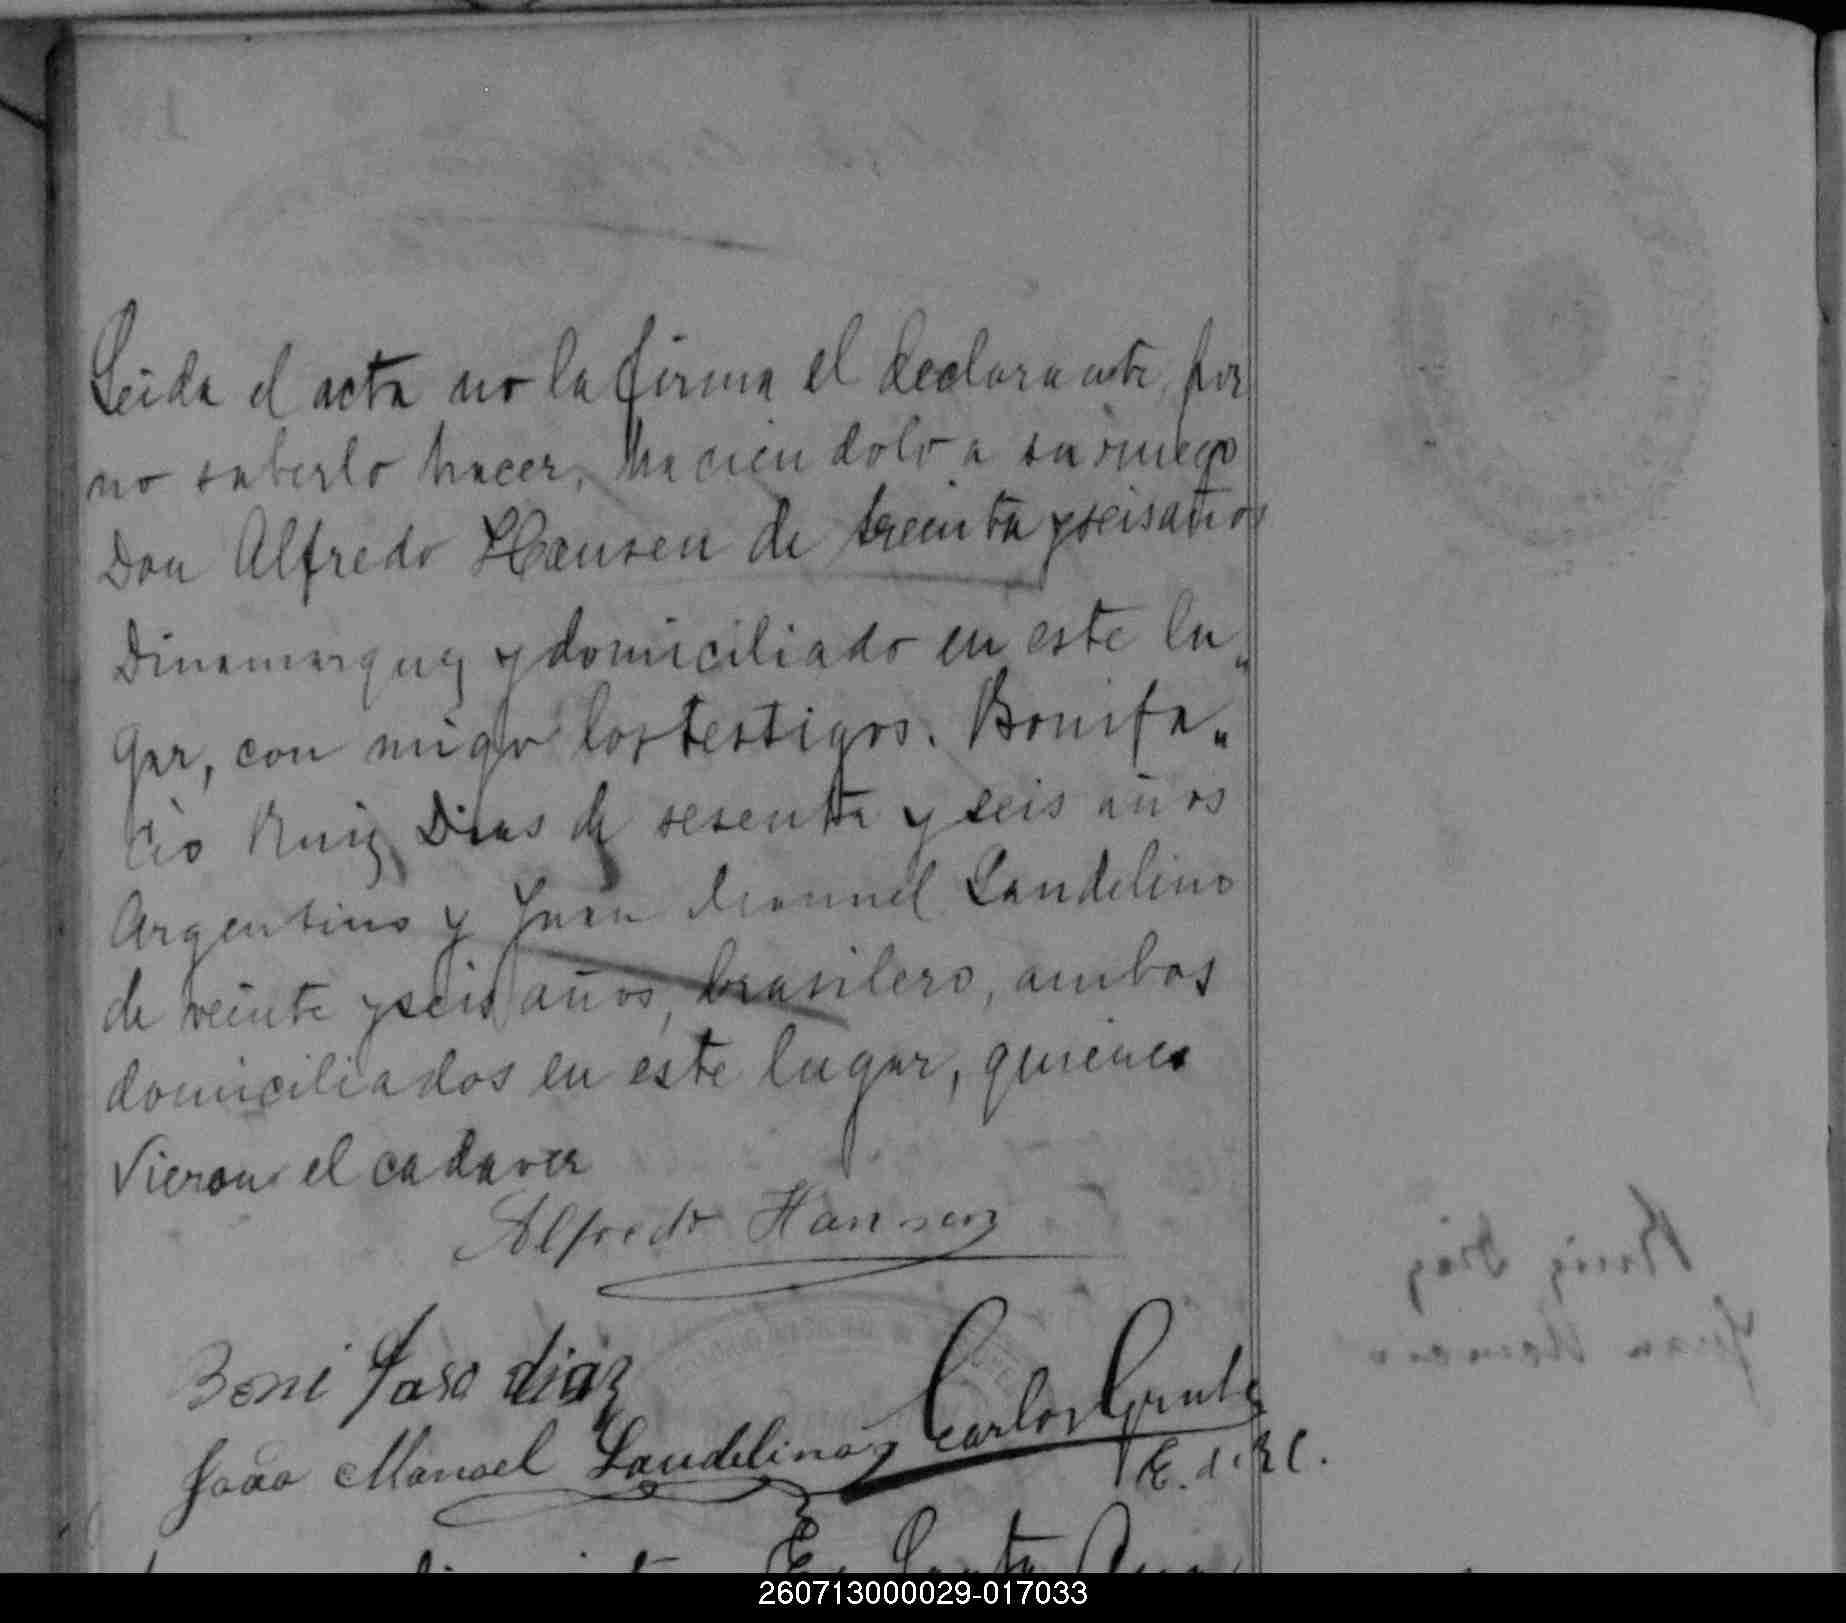 Leida el acta no la firma el declarante, por
no saberlo hacer, haciendolo a su ruego
Don Alfredo Hansen de treinta y seis años
Dinamarquez y domiciliado en este lu„
gar, con migo los testigos. Bonifa„
cio Ruiz Dias de sesenta y seis años
Argentino y Juan Manuel Landelino
de veinte y seis años, brasilero, ambos
domiciliados en este lugar, quienes
Vieron el cadaver
Alfredo Hansen
Boni faso diaz
Carlos
João Manoel Landelino
E. d. R C.
En Santa Ana
260713000029-017033